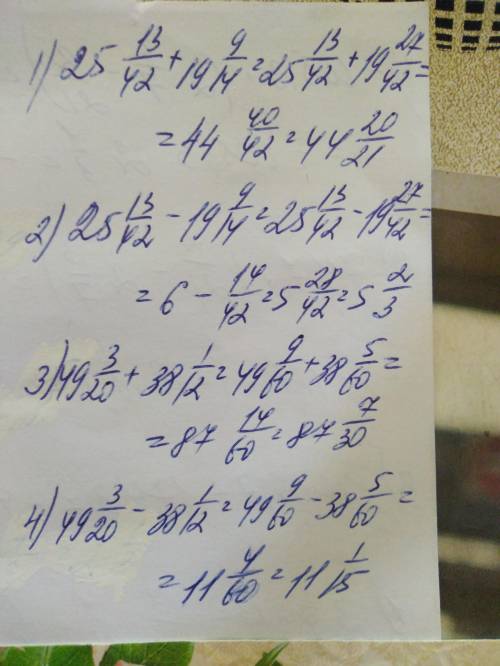 1) 25 13/42 + 19 9/14 = 25 13/42 + 19 27/42 =
= 44 40/42 = 44 20/21
2) 25 13/42 - 19 9/14 = 25 13/42 - 19 27/42 =
= 6 - 14/42 = 5 28/42 = 5 2/3
3) 49 3/20 + 38 1/12 = 49 9/60 + 38 5/60 =
= 87 14/60 = 87 7/30
4) 49 3/20 - 38 1/12 = 49 9/60 - 38 5/60 =
= 11 4/60 = 11 1/15